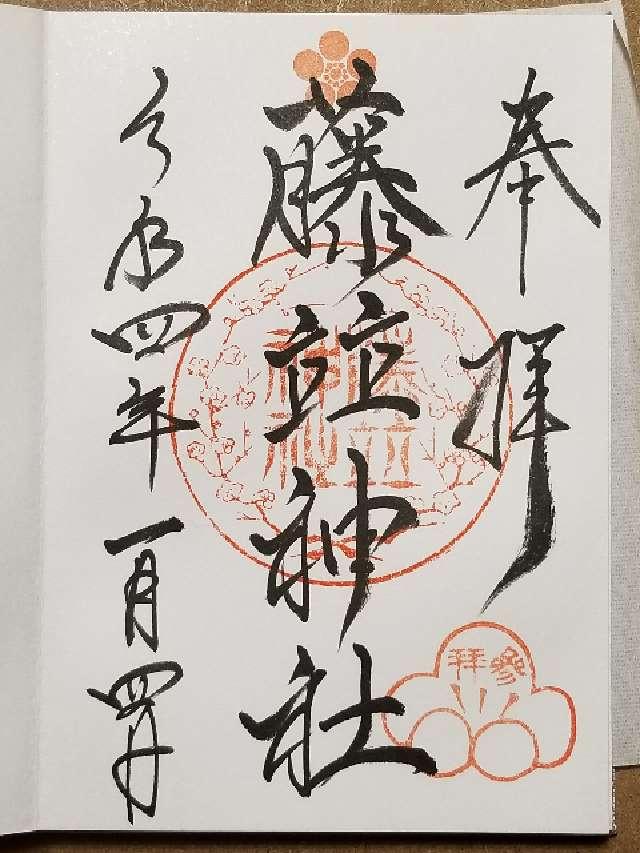 奉拝
藤竝神社
令和四年一月四日
藤竝
神社
參拜